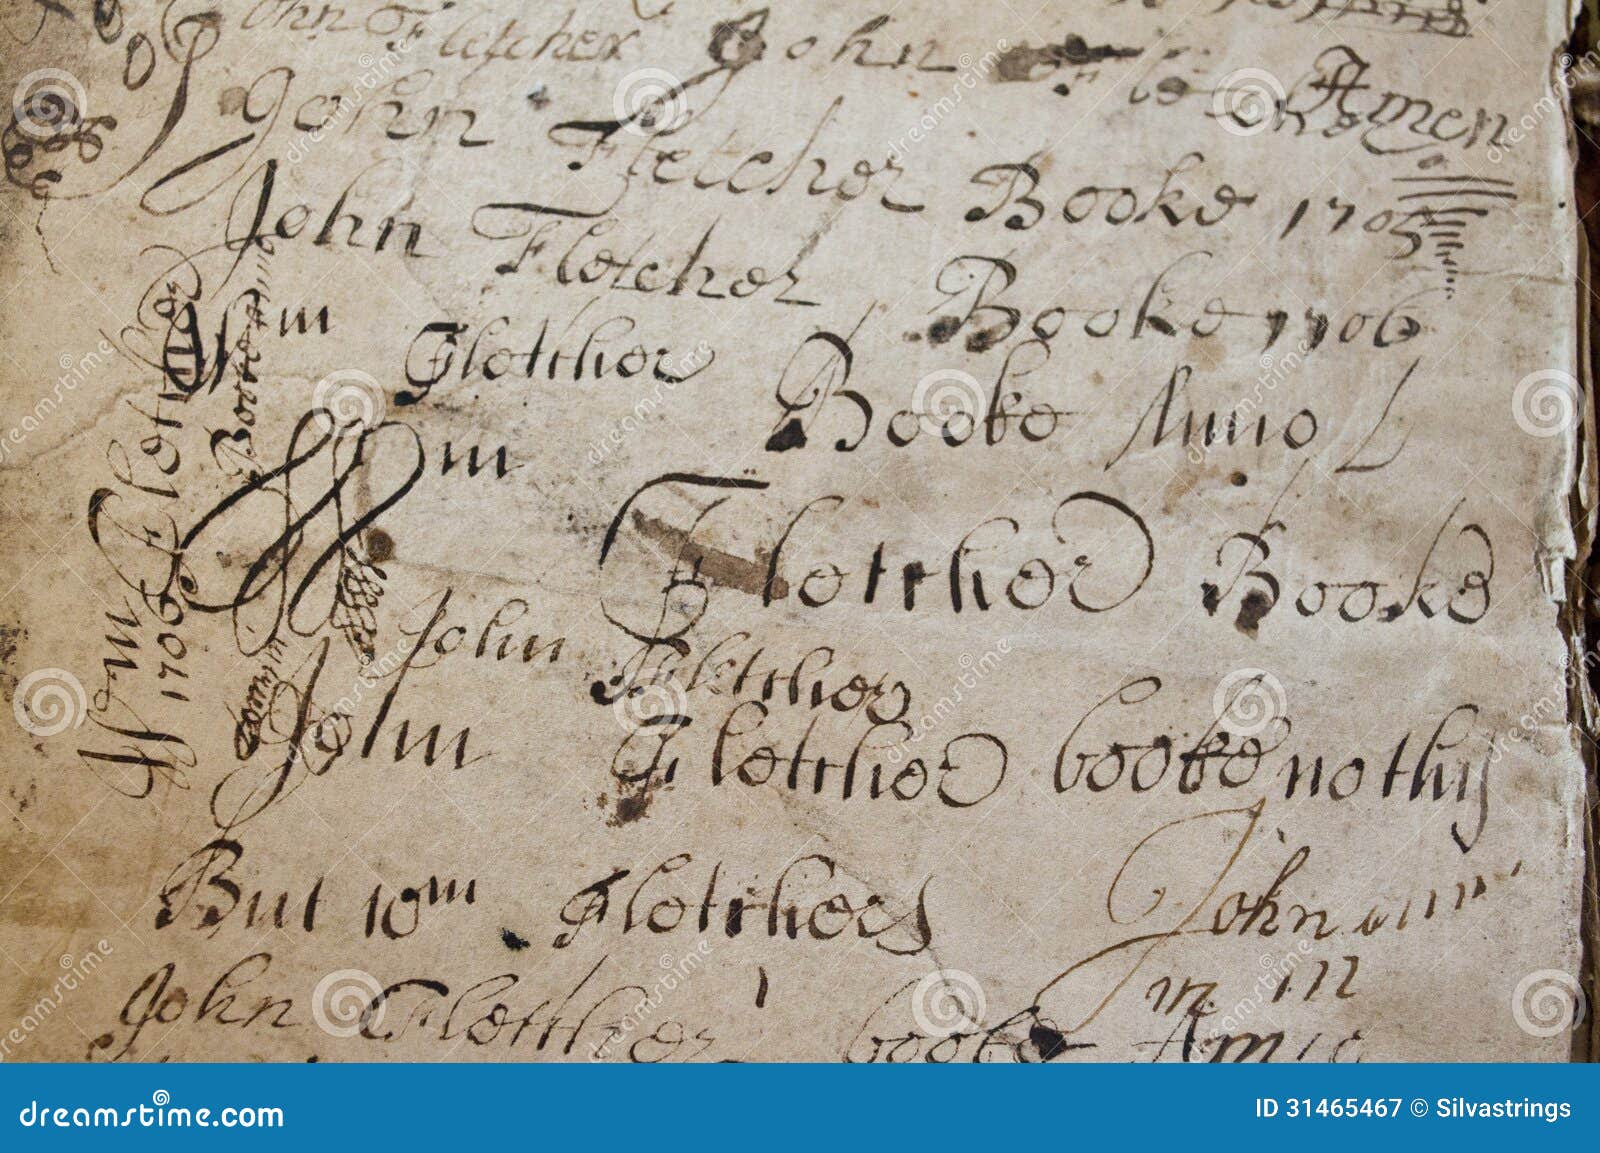 John Fletcher John
Amen
John Fletcher Booke 1705
John Fletcher Booke 1706
Wm Fletcher Booke Anno
Wm Fletcher Booke
John Fletcher
John Fletcher booke nothis
But Wm Fletchers
John
m m
John Fletcher booke Anno
Wm Fletcher
Booke
1706
dreamstime.com
ID 31465467 © Silvastrings